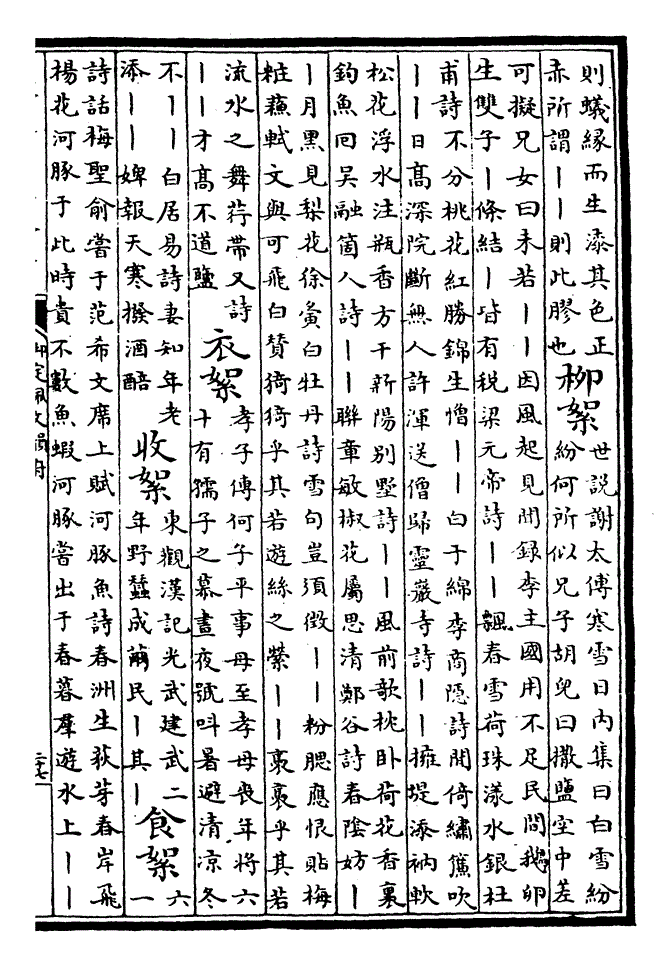 則蟻緣而生漆其色正
赤所謂丨丨則此膠也
柳絮
世說謝太傅寒雪日内集曰白雪紛
紛何所似兄子胡兒曰撒鹽空中差
可擬兄女曰未若丨丨因風起見聞錄李主國用不足民間鵝卵
生雙子丨條結丨皆有税梁元帝詩丨丨飄春雪荷珠漾水銀杜
甫詩不分桃花紅勝錦生憎丨丨白于綿李商隱詩閒倚繡簾吹
丨丨日高深院斷無人許渾送僧歸靈巖寺詩丨丨擁堤添衲軟
松花浮水注瓶香方干新陽別墅詩丨丨風前歌枕卧荷花香裏
釣魚回吴融箇人詩丨丨聯章敏椒花屬思清鄭谷詩春陰妨丨
丨月黑見梨花徐夤白牡丹詩雪句豈須徴丨丨粉腮應恨貼梅
粧蘇軾文與可飛白贊猗猗乎其若遊絲之縈丨丨裊裊乎其若
流水之舞荇帶又詩
丨丨才高不道鹽
衣絮
孝子傳何子平事母至孝母喪年將六
十有孺子之慕晝夜號叫暑避清凉冬
不丨丨白居易詩妻知年老
添丨丨婢報天寒撥酒醅
收絮
東觀漢記光武建武二
年野蠶成繭民丨其丨
食絮
六
一
詩話梅聖俞嘗于范希文席上賦河豚魚詩春洲生荻芽春岸飛
楊花河豚于此時貴不數魚蝦河豚嘗出于春暮羣遊水上丨丨